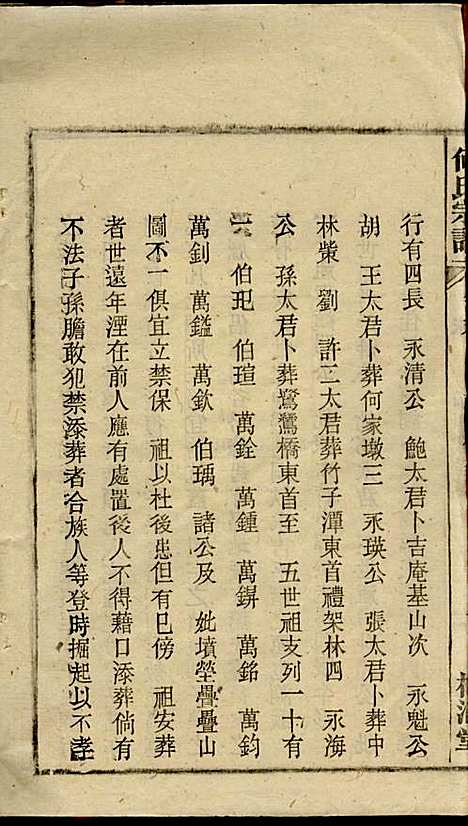 行有四長 永清公 鮑太君卜吉庵基山次 永魁公
胡 王太君卜葬何家墩三 永瑛公 張太君卜葬中
林柴 劉 許二太君葬竹子潭東首禮架林四 永海
公 孫太君卜葬鷺鷥橋東首至 五世祖支列一十有
一 伯玘 伯瑄 萬銓 萬鍾 萬鎅 萬銘 萬鈞
萬釗 萬鎰 萬欽 伯瑀 諸公及 妣墳塋疊疊山
圖不一俱宜立禁保 祖以杜後患但有已傍 祖安葬
者世遠年湮在前人應有處置後人不得藉口添葬倘有
不法子孫膽敢犯禁添葬者合族人等登時掘起以不孝